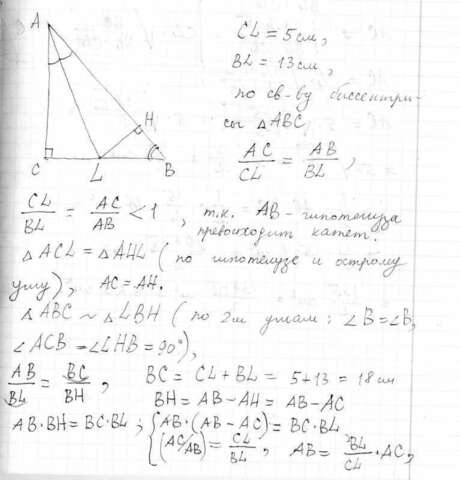 A
H
C
L
B
CL = 5 см,
BL = 13 см,
по св-ву биссектри-
сы △ABC
AC/CL = AB/BL,
CL/BL = AC/AB < 1, т.к. AB - гипотенуза
превосходит катет.
△ACL = △AHL (по гипотенузе и острому
углу), AC = AH.
△ABC ~ △LBH (по 2м углам: ∠B = ∠B,
∠ACB = ∠LHB = 90°),
AB/BL = BC/BH, BC = CL + BL = 5 + 13 = 18 см
BH = AB - AH = AB - AC
AB·BH = BC·BL; { AB·(AB - AC) = BC·BL
(AC/AB) = CL/BL, AB = BL/CL · AC,